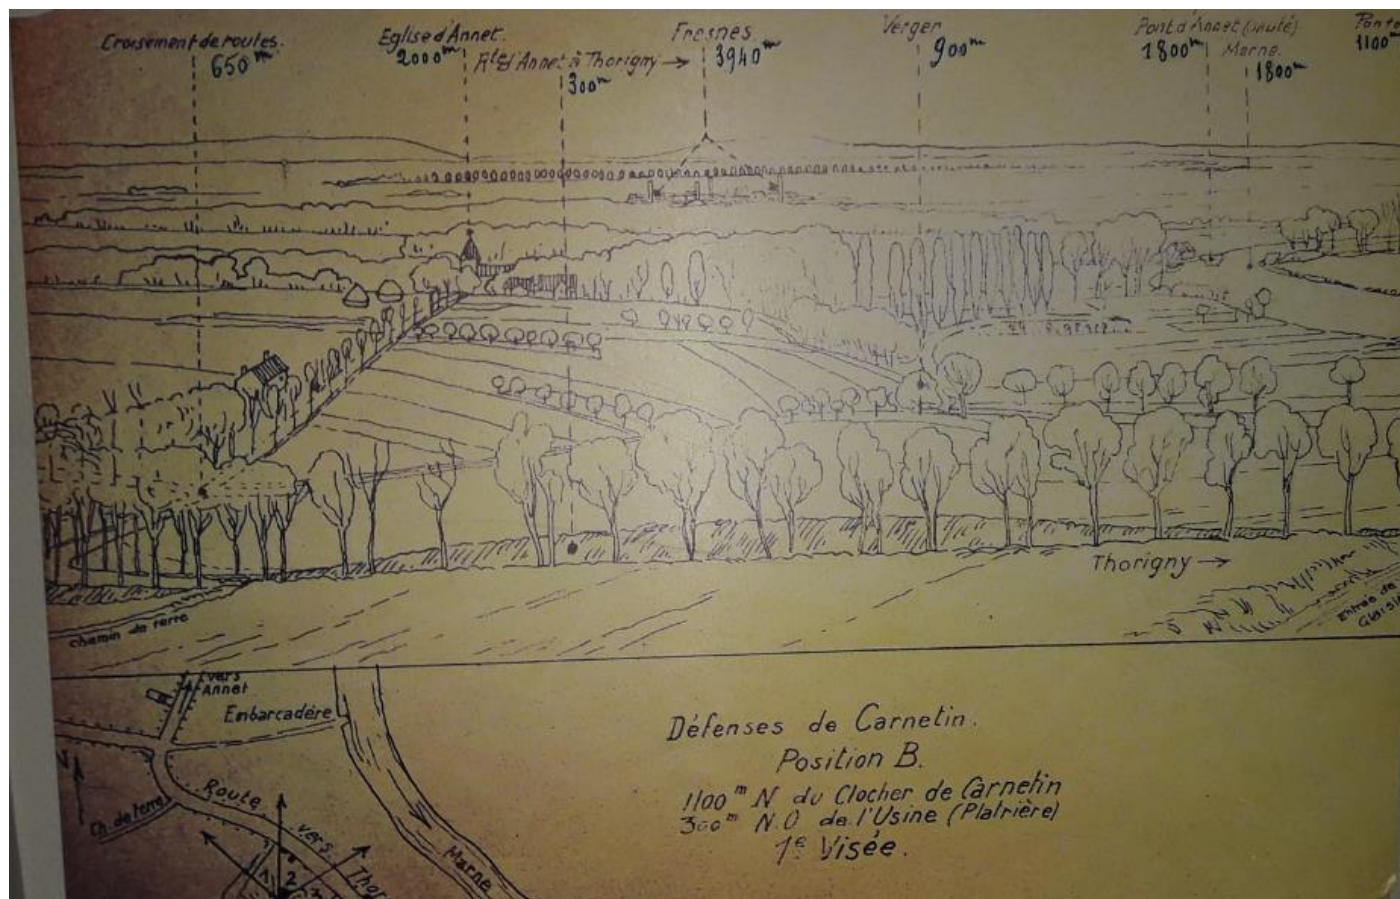 Croisement de routes.
650m
Eglise d'Annet.
2000m
Rte d'Annet à Thorigny →
300m
Fresnes
3940m
Verger
900m
Pont d'Annet (sauté)
1800m
Marne.
1800m
1100m
Thorigny →
chemin de terre
Entrée de
vers
Annet
Embarcadère
N
Ch. de terre
Route
vers
Thor
Marne
1
2
3
Défenses de Carnetin.
Position B.
1100m N du Clocher de Carnetin
300m N.O de l'Usine (Platrière)
1e Visée.